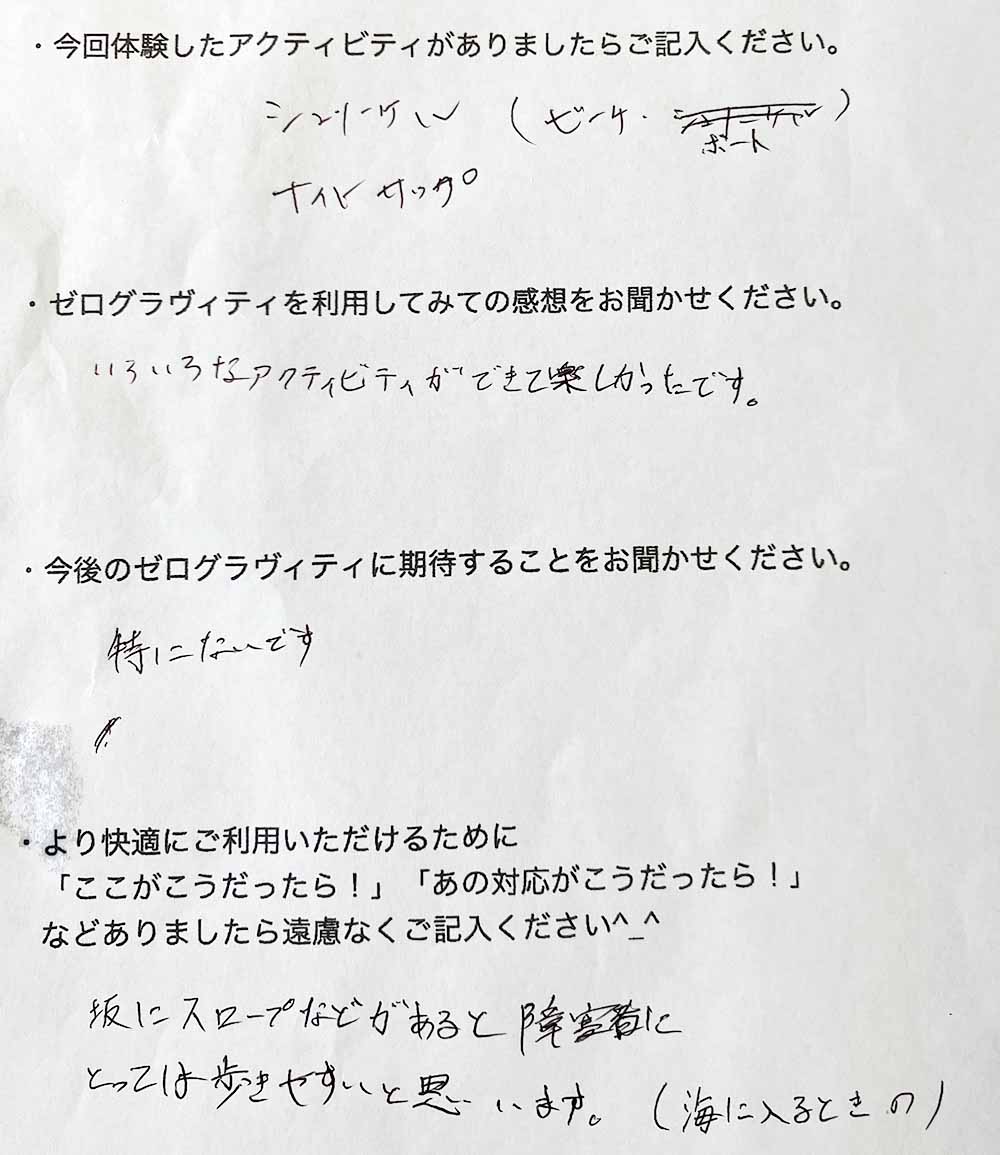 ・今回体験したアクティビティがありましたらご記入ください。
シュノーケル（ビーチ・ボート）
ナイトサップ
・ゼログラヴィティを利用してみての感想をお聞かせください。
いろいろなアクティビティができて楽しかったです。
・今後のゼログラヴィティに期待することをお聞かせください。
特にないです
・より快適にご利用いただけるために
「ここがこうだったら！」「あの対応がこうだったら！」
などありましたら遠慮なくご記入ください^_^
坂にスロープなどがあると障害者に
とっては歩きやすいと思います。（海に入るときの）